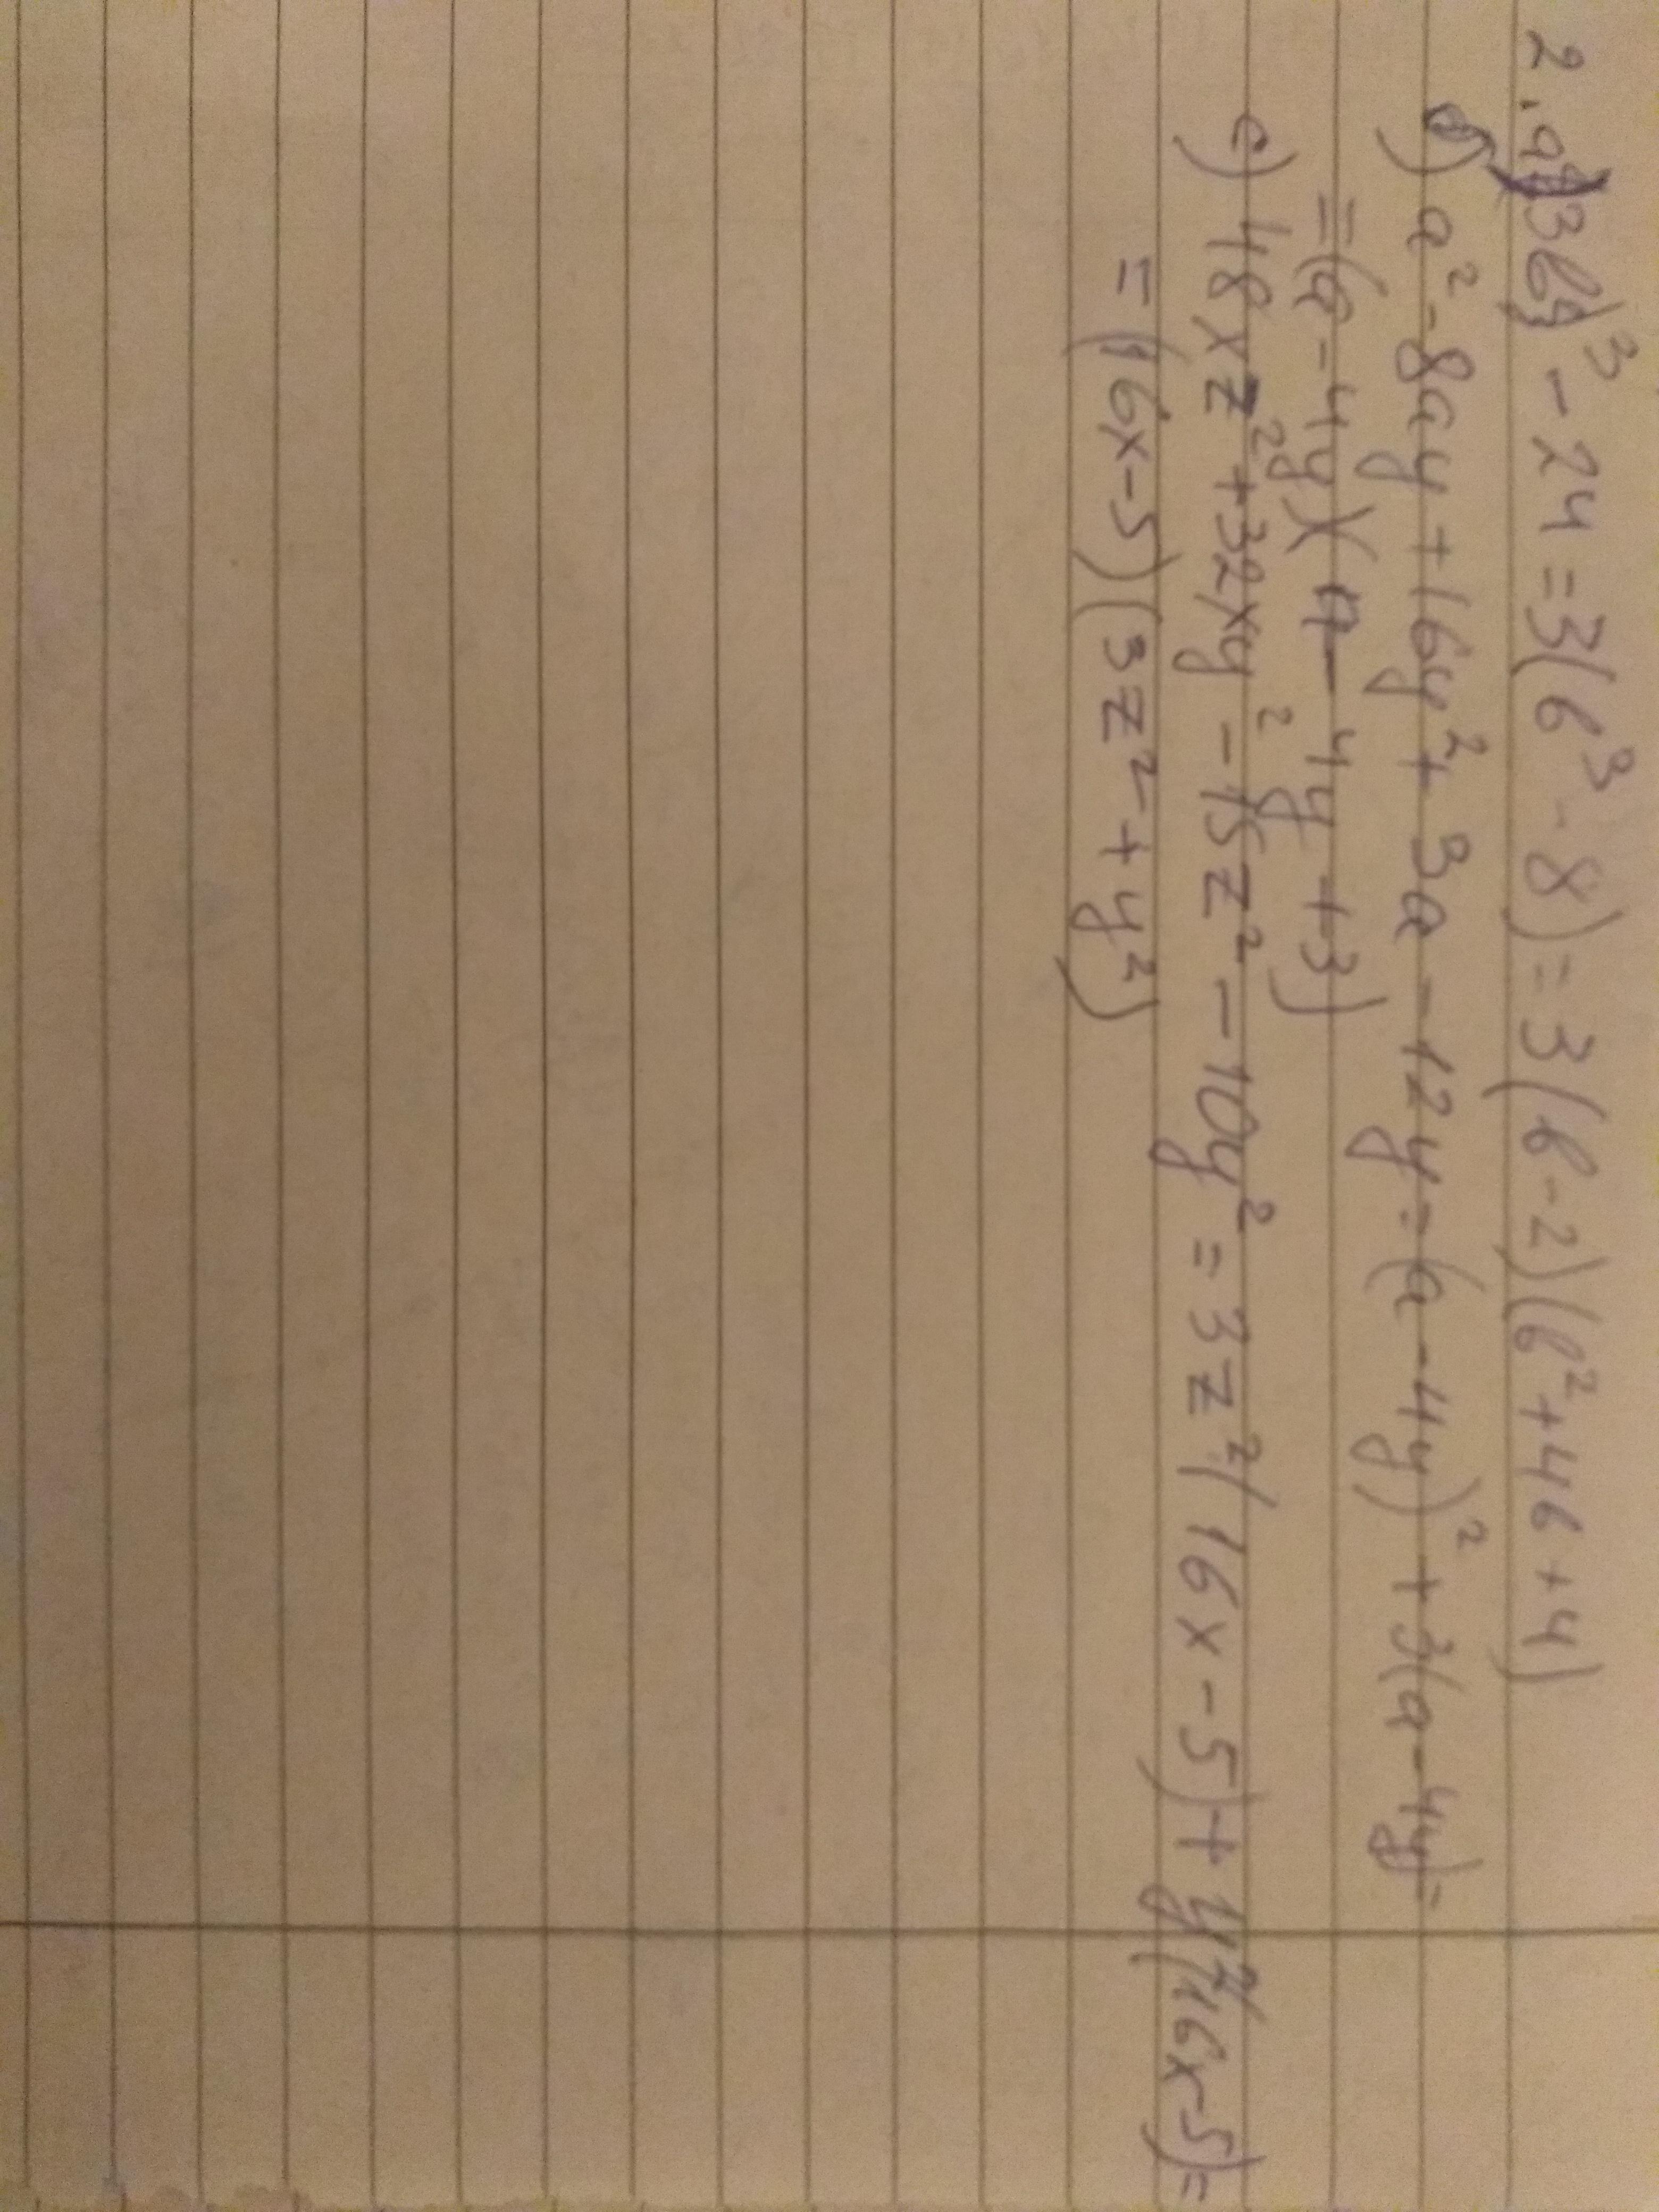 2. а) 3b³ - 24 = 3(b³ - 8) = 3(b - 2)(b² + 4b + 4)
б) a² - 8ay + 16y² + 3a - 12y = (a - 4y)² + 3(a - 4y) =
= (a - 4y)(a - 4y + 3)
с) 48xz² + 32xy² - 15z² - 10y² = 3z²(16x - 5) + y²(16x - 5) =
= (16x - 5)(3z² + y²)